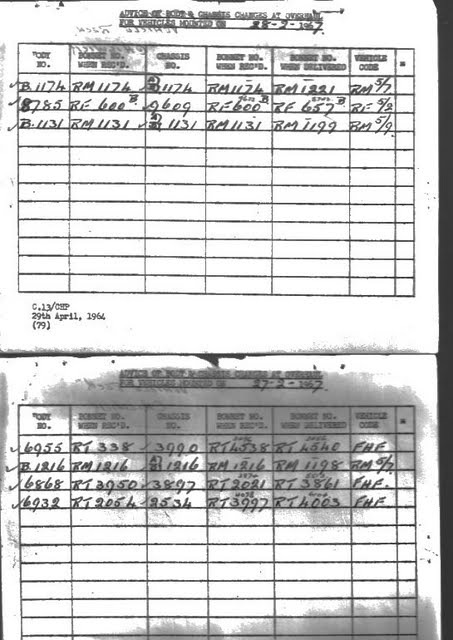 ADVICE OF BODY & CHASSIS CHANGES AT OVERHAUL
FOR VEHICLES MOUNTED ON 28-2-1967
BODY NO. BONNET NO. WHEN REC'D. CHASSIS NO. BONNET NO. WHEN REC'D. BONNET NO. WHEN DELIVERED VEHICLE CODE
B.1174 RM 1174 1174 RM 1174 RM 1221 RM 5/7
8785 RF 600 B 609 RF 600 B RF 657 B RF 5/2
B.1131 RM 1131 1131 RM 1131 RM 1199 RM 5/9
C.13/CHP
29th April, 1964
(79)
ADVICE OF BODY & CHASSIS CHANGES AT OVERHAUL
FOR VEHICLES MOUNTED ON 27-2-1967
BODY NO. BONNET NO. WHEN REC'D. CHASSIS NO. BONNET NO. WHEN REC'D. BONNET NO. WHEN DELIVERED VEHICLE CODE
6955 RT 338 3990 RT 4538 RT 4540 FHF
B.1216 RM 1216 1216 RM 1216 RM 1198 RM 5/7
6868 RT 3950 3897 RT 2021 RT 3861 FHF.
6932 RT 2054 2534 RT 3997 RT 4003 FHF.